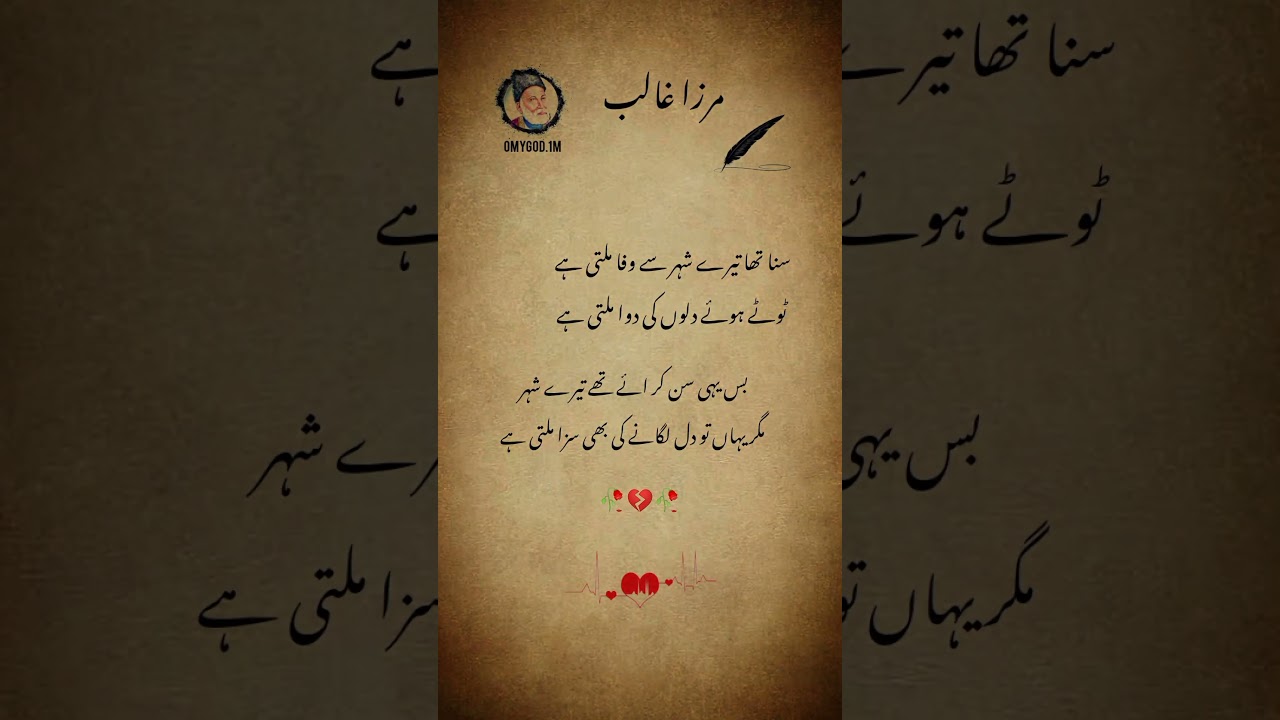 مرزا غالب
OMYGOD.1M
سنا تھا تیرے شہر سے وفا ملتی ہے
ٹوٹے ہوئے دلوں کی دوا ملتی ہے
بس یہی سن کر ائے تھے تیرے شہر
مگر یہاں تو دل لگانے کی بھی سزا ملتی ہے